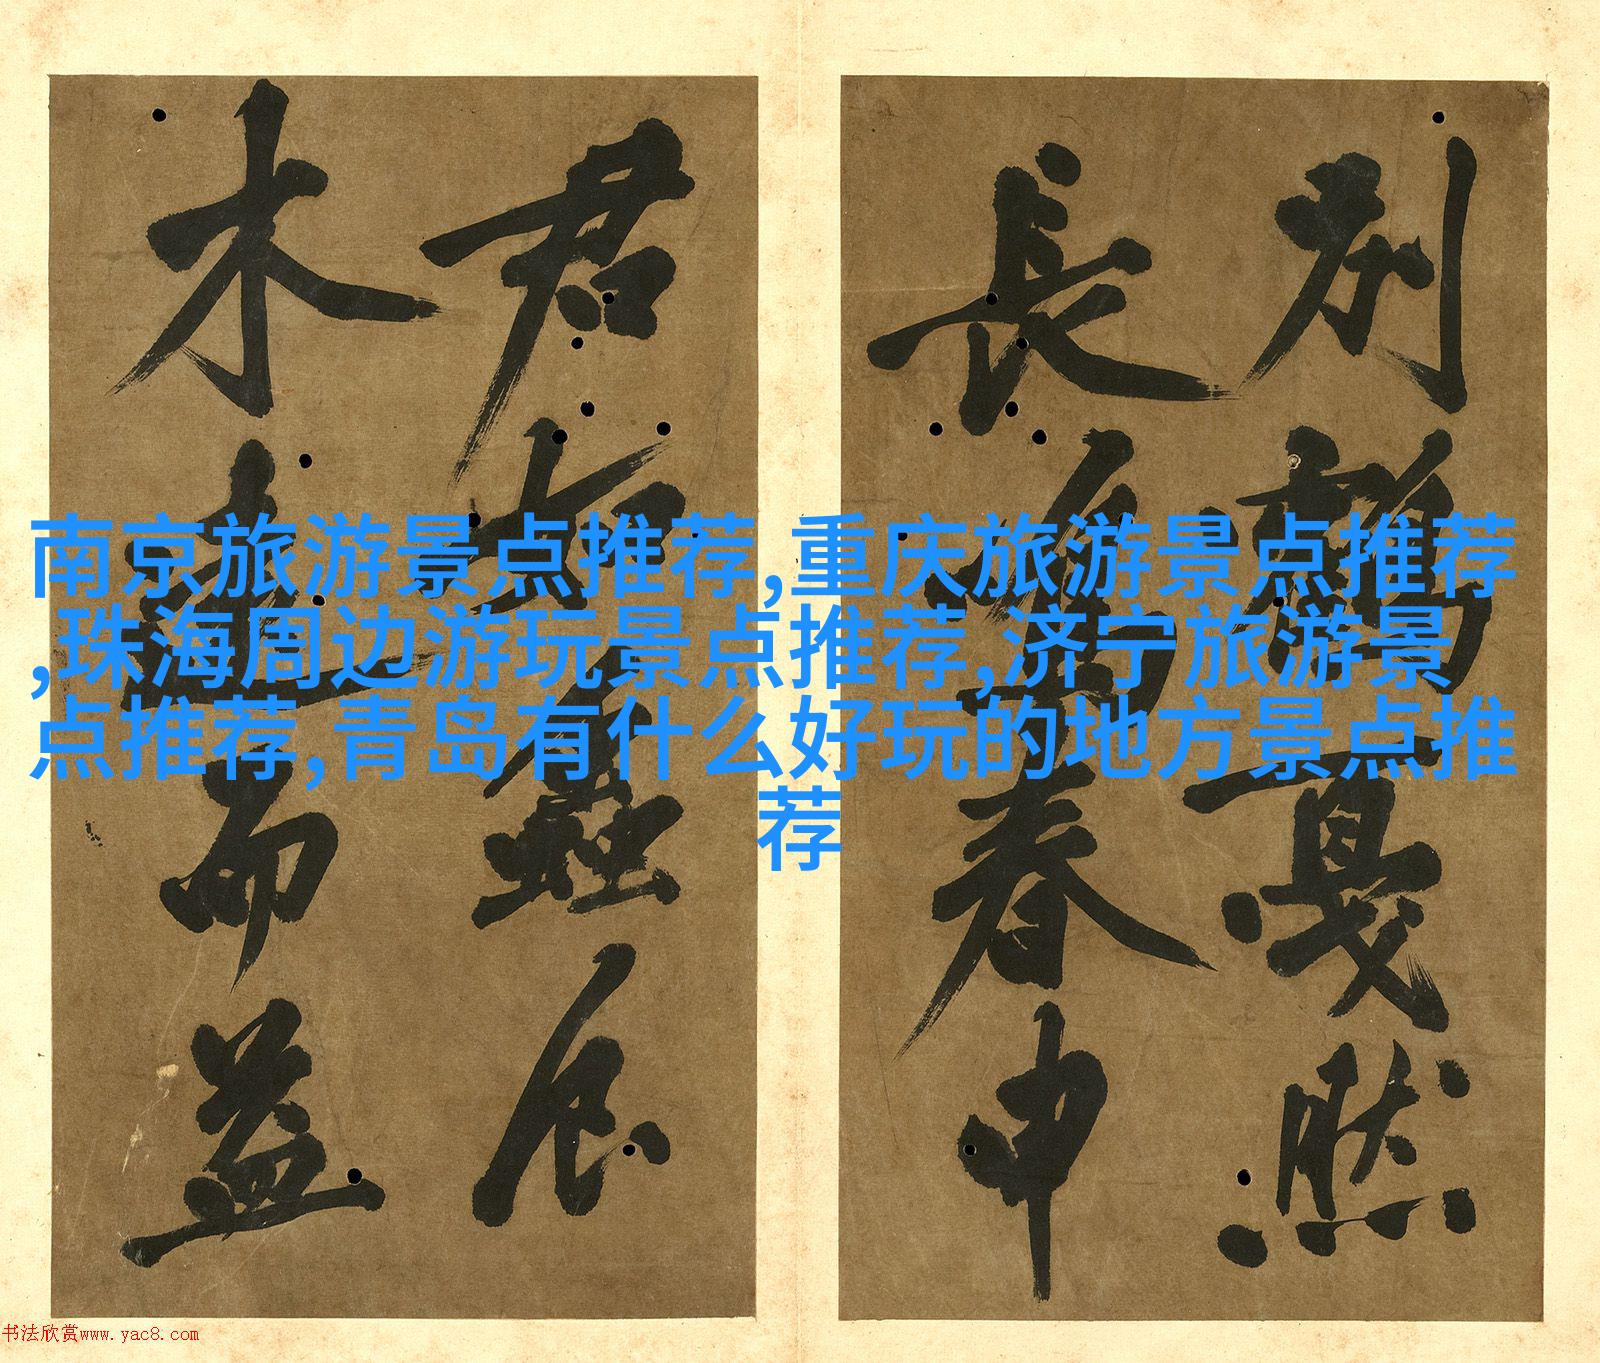 南京旅游景点推荐,重庆旅游景点推荐
,珠海周边游玩景点推荐,济宁旅游景
点推荐,青岛有什么好玩的地方景点推
荐
別鶴戛然
長鳴春申
君
木而益
书法欣赏www.yac8.com